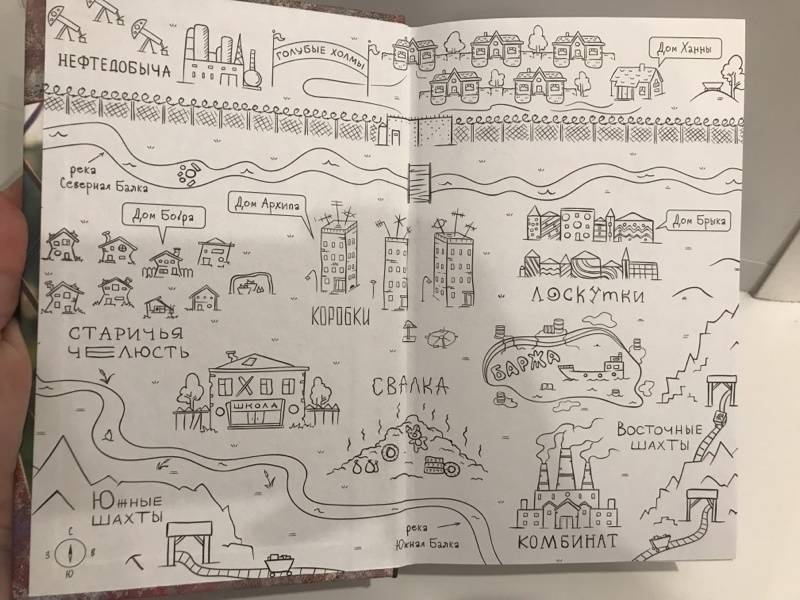 НЕФТЕДОБЫЧА
ГОЛУБЫЕ ХОЛМЫ
Дом Ханны
река
Северная Балка
Дом Бобра
Дом Архипа
Дом Брыка
КОРОБКИ
ЛОСКУТКИ
СТАРИЧЬЯ
ЧЕЛЮСТЬ
ШКОЛА
СВАЛКА
БАРЖА
ВОСТОЧНЫЕ
ШАХТЫ
ЮЖНЫЕ
ШАХТЫ
река
Южная Балка
КОМБИНАТ
С
З В
Ю